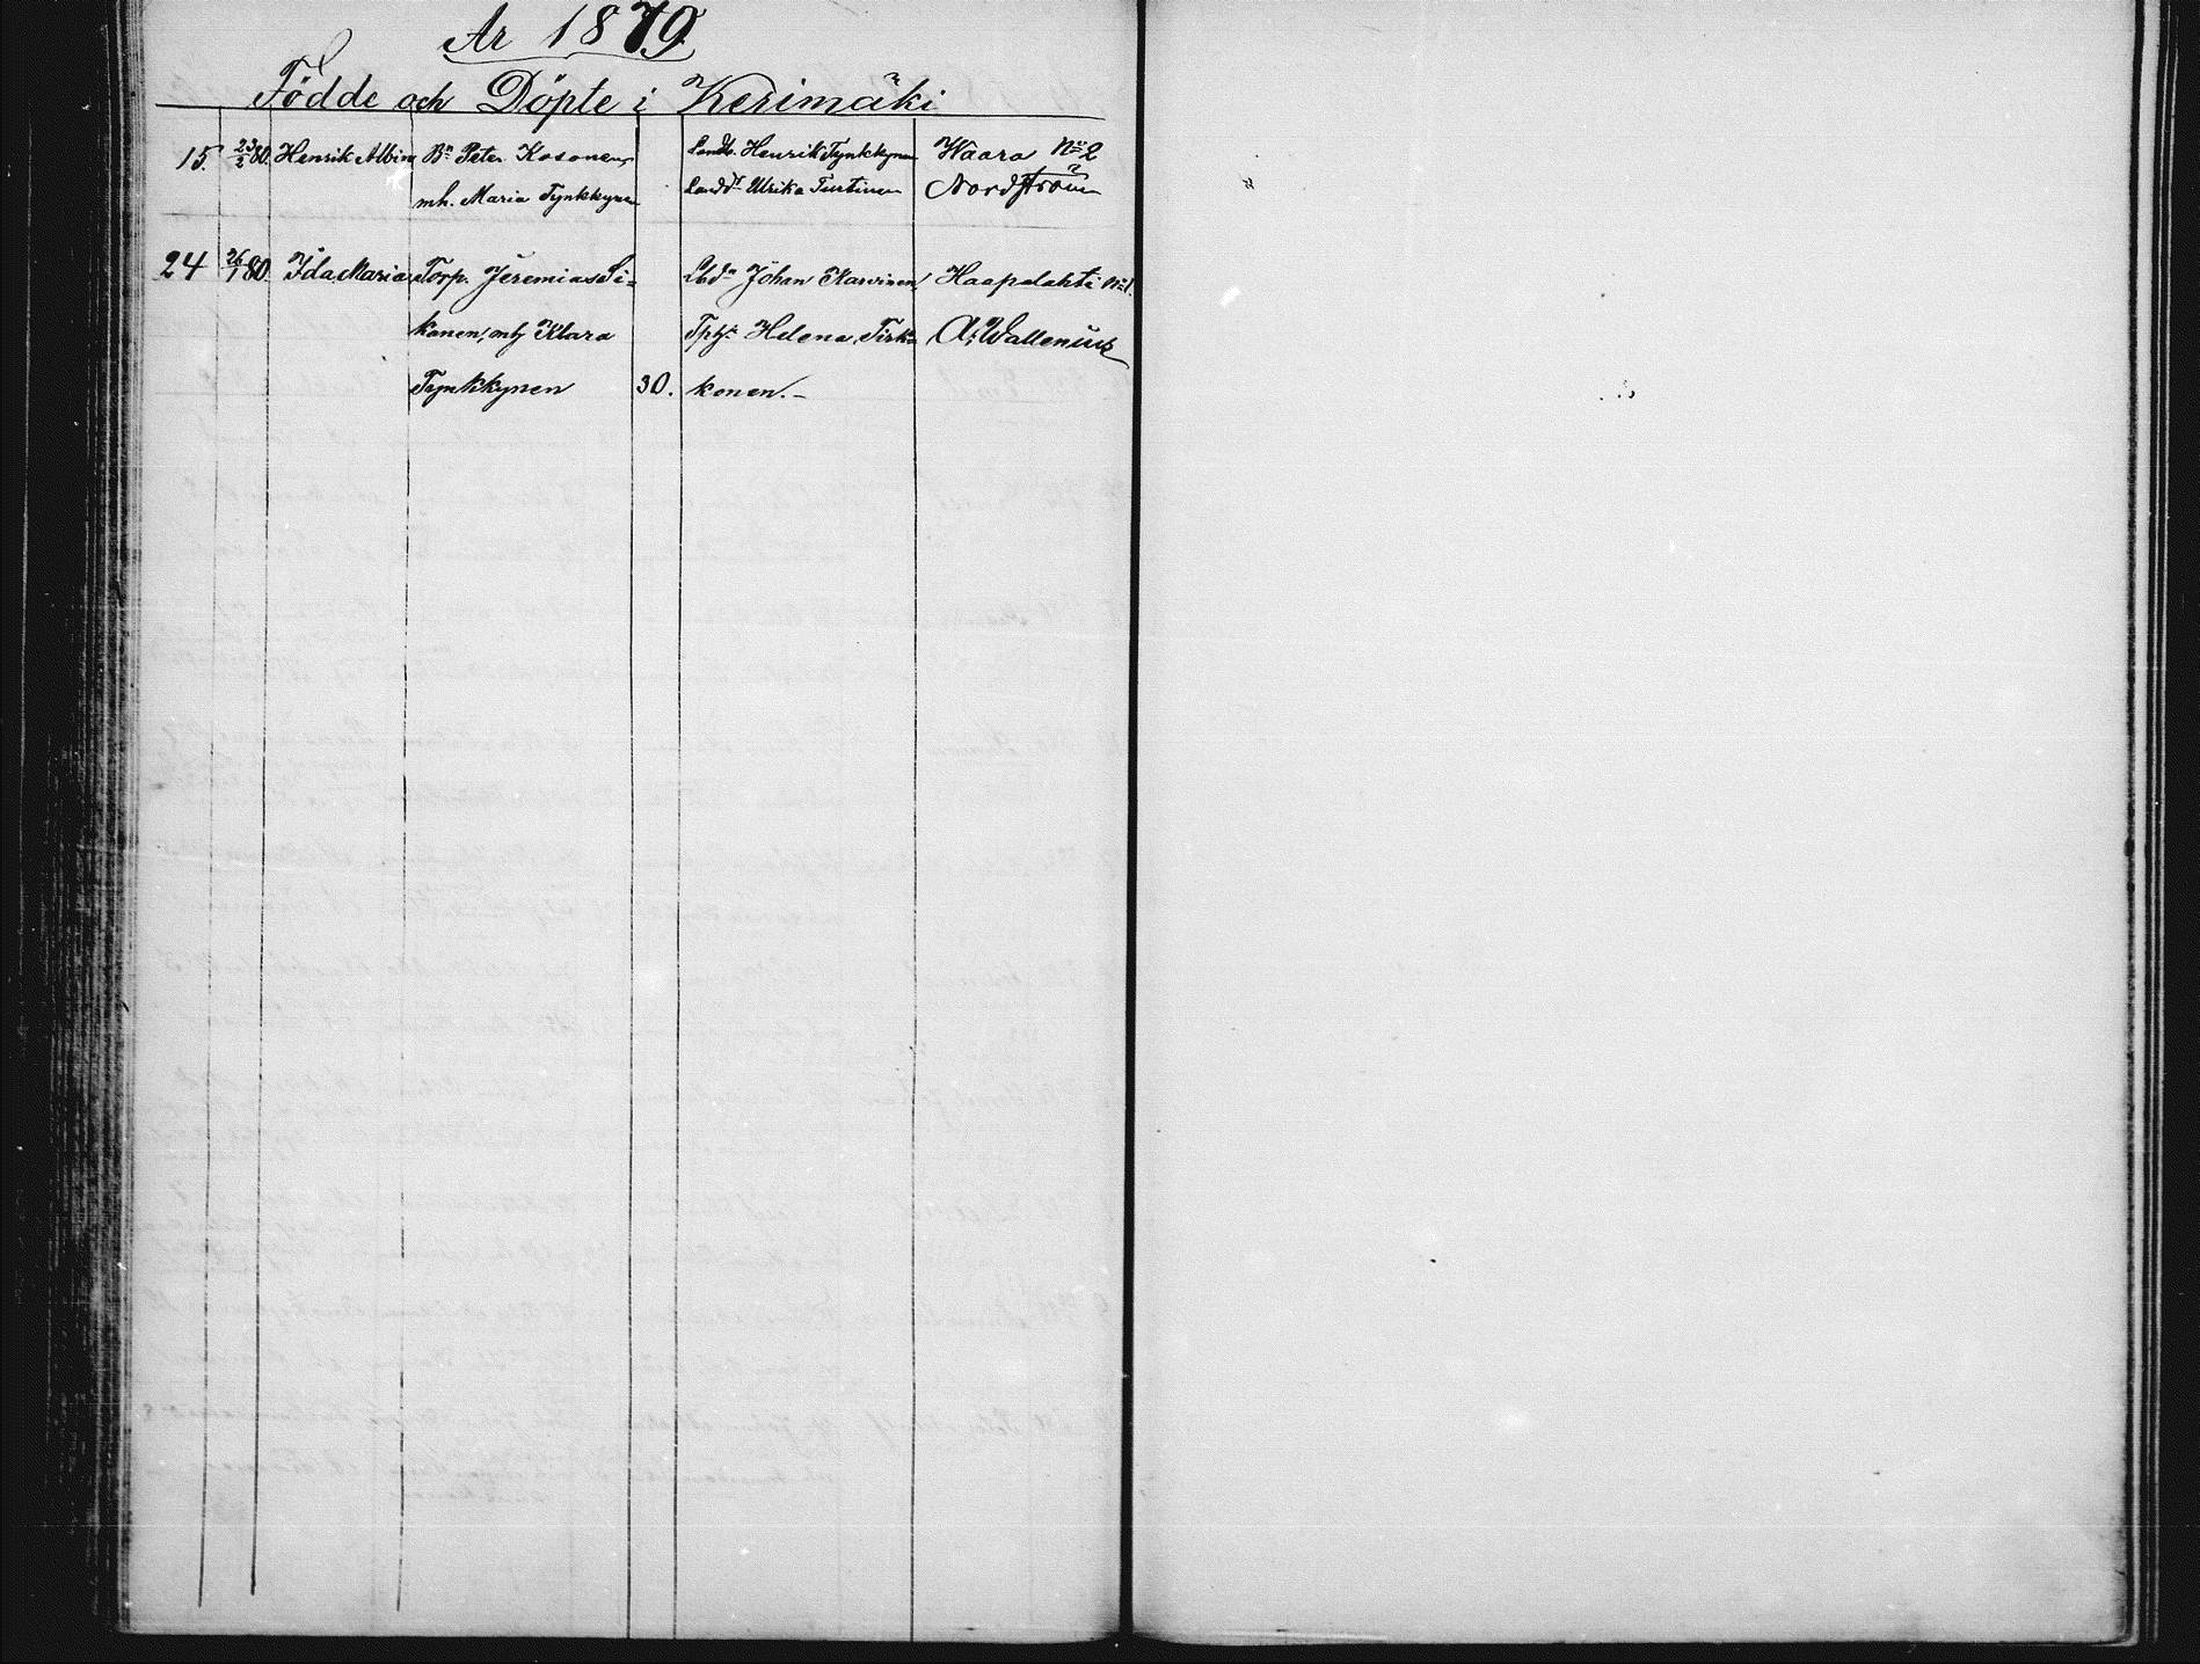 År 1879
Födde och Döpte i Kerimäki
15. 23/2 80. Henrik Albin Bn Peter Kosonen, Landb. Henrik Tynkkynen Waara No 2
mh. Maria Tynkkynen Landds Ulrika Turtinen Nordström
24 26/1 80. Ida Maria Torp. Jeremias Si= Lbdn Johan Karvinen, Haapalahti No 1.
konen, mh Klara Helena Tirk= A. Wallenius
Tynkkynen 30. konen.-